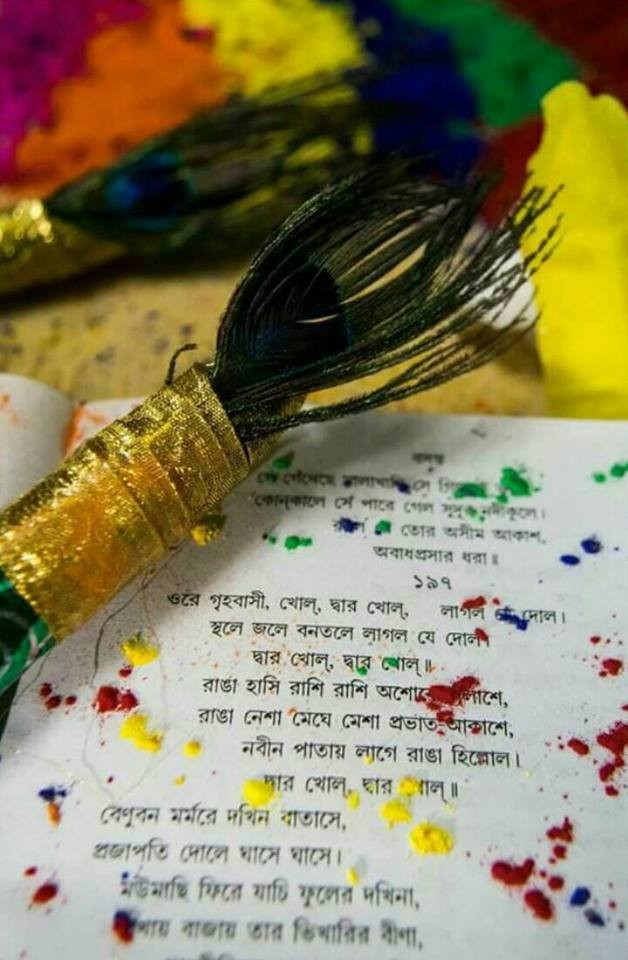 বসন্ত
গেঁথেছে মালাখানি সে
কোন্‌কালে সে পারে গেল সুদূর নদীকূলে।
তোর অসীম আকাশ,
অবাধপ্রসার ধরা॥
১৯৭
ওরে গৃহবাসী, খোল্, দ্বার খোল্, লাগল যে দোল।
স্থলে জলে বনতলে লাগল যে দোল।
দ্বার খোল্, দ্বার খোল্॥
রাঙা হাসি রাশি রাশি অশোকে পলাশে,
রাঙা নেশা মেঘে মেশা প্রভাত-আকাশে,
নবীন পাতায় লাগে রাঙা হিল্লোল।
দ্বার খোল্, দ্বার খোল্॥
বেণুবন মর্মরে দখিন বাতাসে,
প্রজাপতি দোলে ঘাসে ঘাসে।
মউমাছি ফিরে যাচি ফুলের দখিনা,
পাখায় বাজায় তার ভিখারির বীণা,